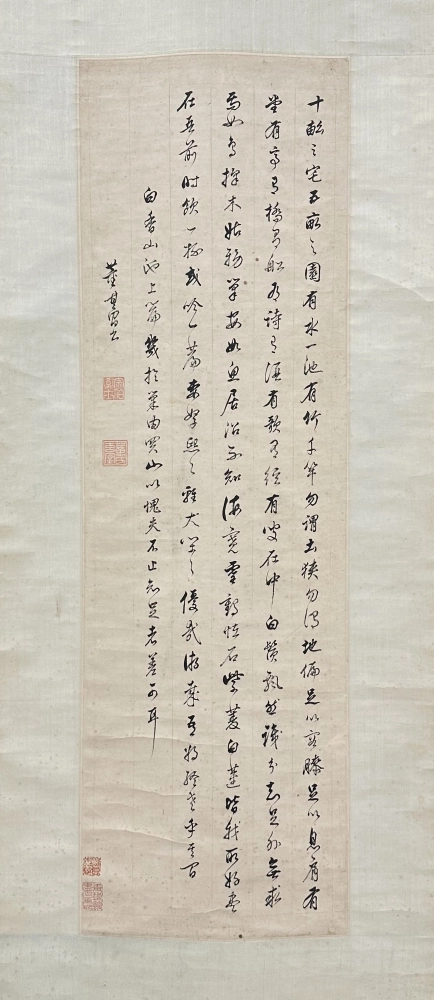 十畝之宅五畝之園有水一池有竹千竿勿謂土狹勿謂地偏足以容膝足以息肩有
堂有亭有橋有船有詩有酒有歌有絃有叟在中白鬚飄然識分知足外無求
焉如鳥擇木姑務巢安如魚居沼不知海寬靈鶴怪石紫菱白蓮皆我所好盡
在吾前時飲一杯或吟一篇妻孥熙熙雞犬閑閑優哉游哉吾將終老乎其間
白香山池上篇幾於巢由買山以愧夫不止知足者可耳
董其昌書